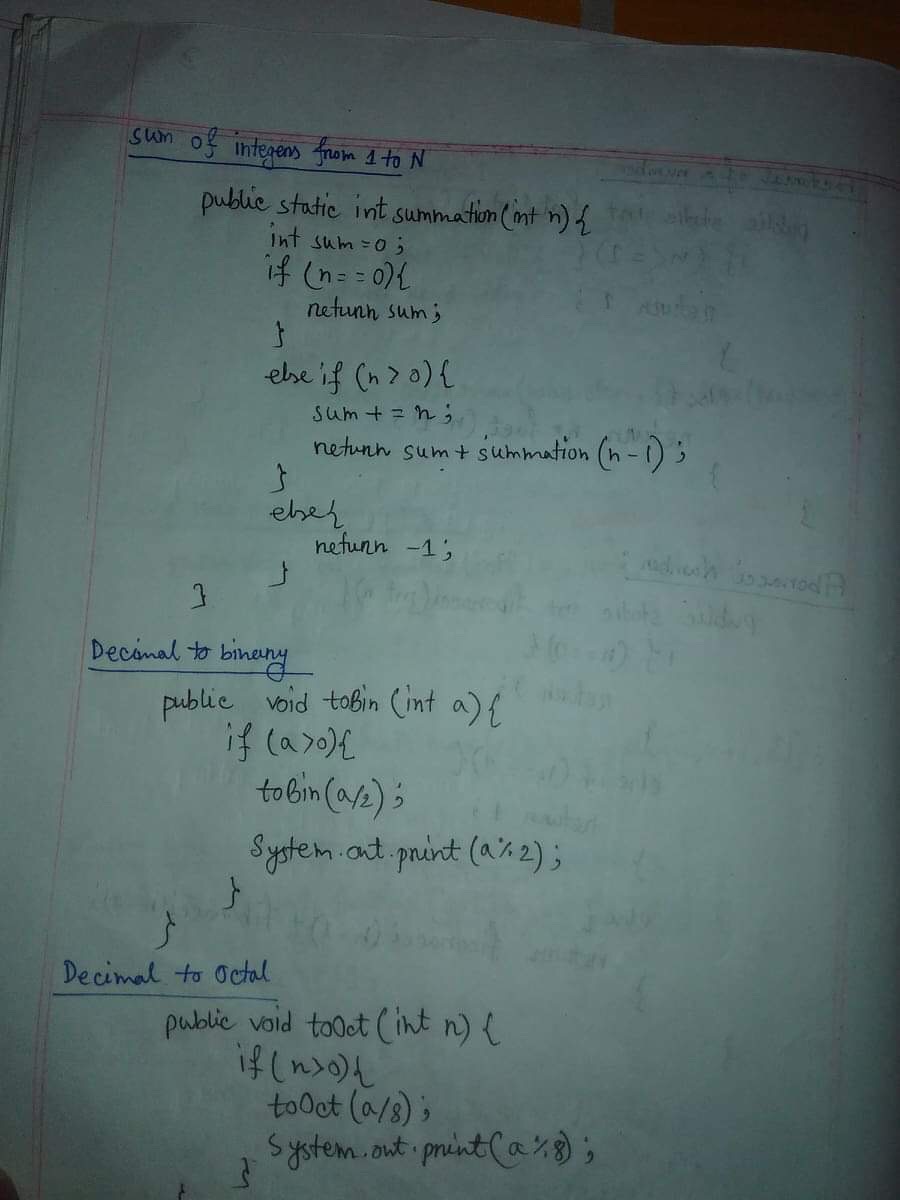 sum of integers from 1 to N
public static int summation (int n) {
int sum = 0 ;
if (n = = 0) {
return sum ;
}
else if (n > 0) {
sum + = n ;
return sum + summation (n - 1) ;
}
else {
return -1 ;
}
}
Decimal to binary
public void toBin (int a) {
if (a > 0) {
toBin (a/2) ;
System.out.print (a % 2) ;
}
}
Decimal to Octal
public void toOct (int n) {
if (n > 0) {
toOct (a/8) ;
System.out.print (a % 8) ;
}
}